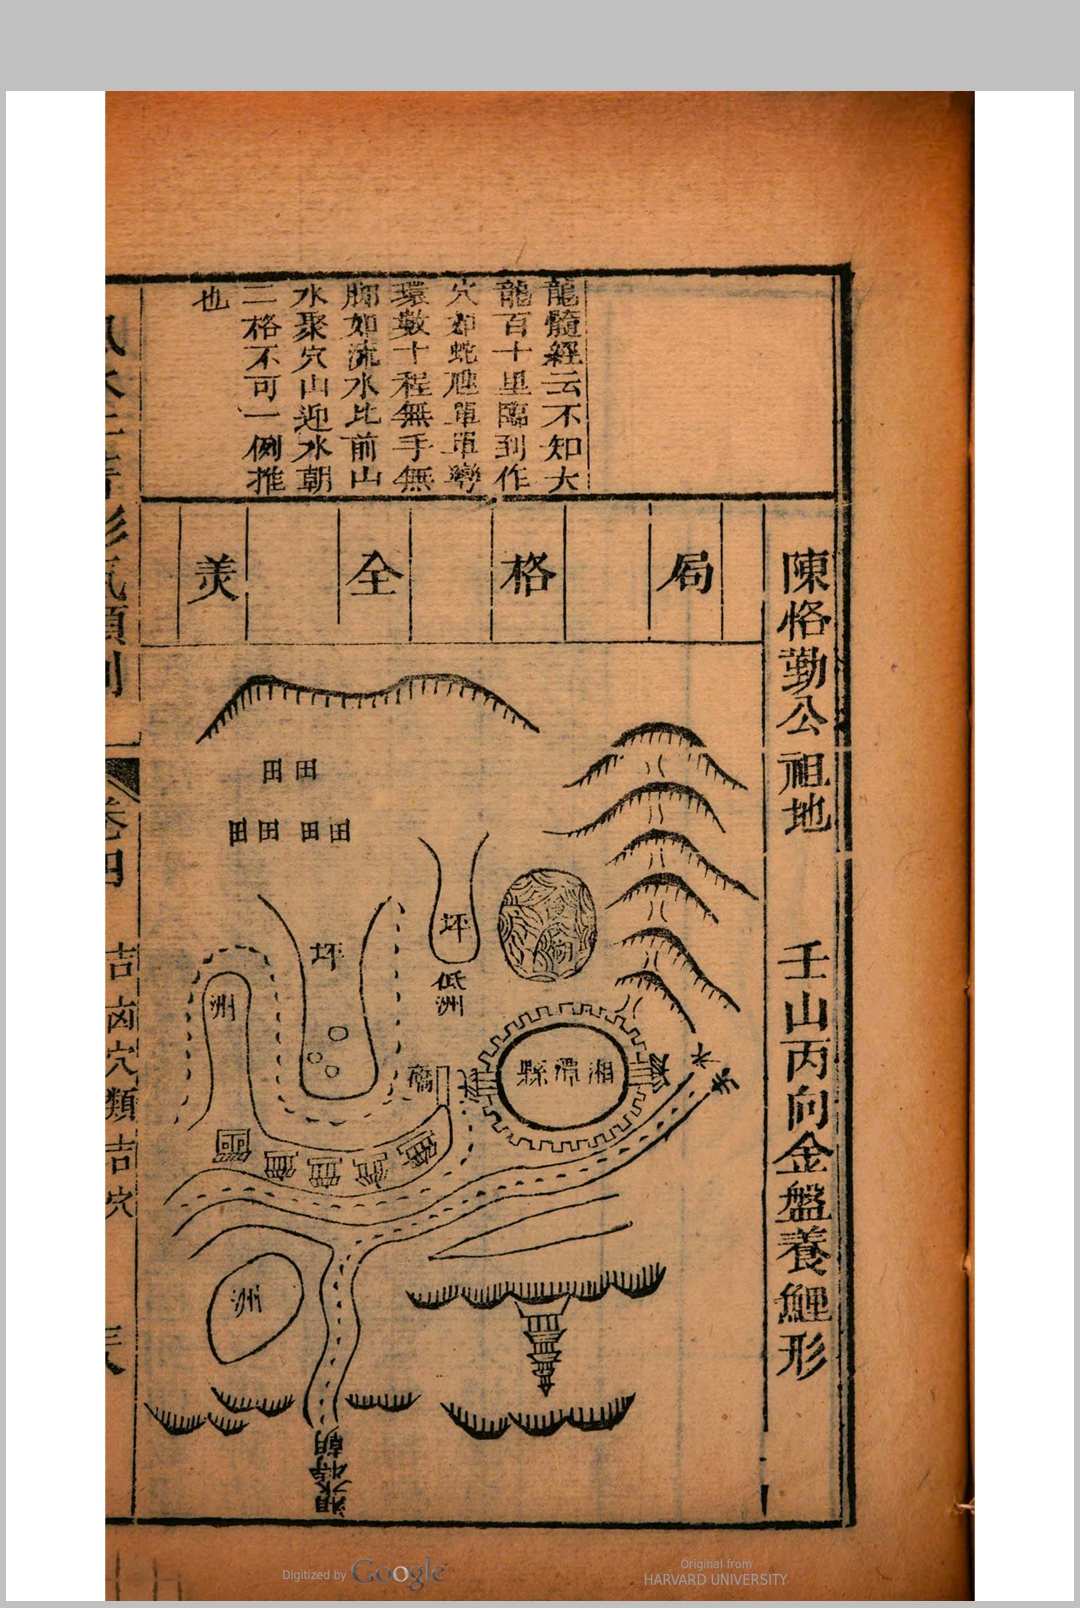 陳恪勤公祖地 壬山丙向金盤養鯉形
局格全美
龍髓經云不知大
龍百十里臨到作
穴如蛇𨓏單單彎
環數十程無手無
脚如流水比前山
水聚穴山迎水朝
二格不可一例推
也
田田
田田田田
坪
坪
低洲
洲
橋
湘潭縣
水
洲
卷四
吉凶穴類吉穴
Digitized by Google
Original from
HARVARD UNIVERSITY